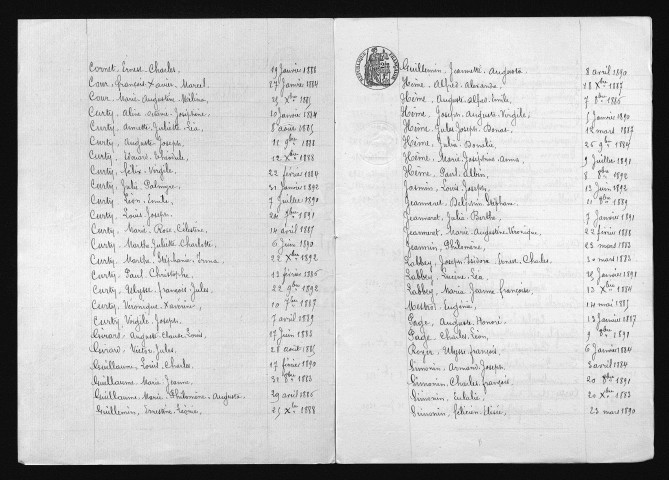 Cornet, Ernest Charles, 19 Janvier 1888
Cour, François Xavier Marcel 27 Janvier 1884
Cour, Marie Augustine Mélina, 25 Xbre 1885
Curty, Aline Jéséphine 10 Janvier 1884
Curty, Annette Juliette Léa, 8 août 1885
Curty, Auguste Joseph, 11 9bre 1888
Curty, Edouard 12 Xbre 1888
Curty, Félix Virgile, 22 février 1884
Curty, Jules Palmyre, 31 Janvier 1892
Curty, Léon Emile, 7 Juillet 1890
Curty, Louis Joseph, 24 9bre 1891
Curty, Marie Rose Célestine, 14 avril 1887
Curty, Marthe Juliette Charlotte, 6 Juin 1890
Curty, Marthe Stéphanie Irma, 22 Xbre 1892
Curty, Paul Christophe, 13 février 1886
Curty, Ulysse François Jules, 22 9bre 1892
Curty, Véronique Xavérine, 10 7bre 1887
Curty, Virgile Joseph, 7 avril 1889
Girard, Auguste Claude Louis, 17 Juin 1883
Girard, Victor Jules, 28 août 1885
Guillaume, Louis Charles, 17 février 1890
Guillaume, Marie Jeanne, 31 8bre 1883
Guillaume, Marie Philomène Augusta 29 avril 1886
Guillemin, Ernestine Léonie, 25 Xbre 1888
RÉPUBLIQUE FRANÇAISE
Guillemin, Jeannette Augusta 8 avril 1890
Hême, Alfred 18 Xbre 1887
Hême, Auguste Alfred Emile, 7 8bre 1886
Hême, Joseph Auguste Virgile, 5 Janvier 1890
Hême, Jules Joseph Donat, 12 mars 1887
Hême, Julia 26 9bre 1884
Hême, Marie Joséphine Anna, 9 Juillet 1891
Hême, Paul Albin, 8 8bre 1892
Jasmin, Louis Joseph, 13 Juin 1892
Jeannerat, Delphin Stéphane, 11 8bre 1889
Jeanneret, Julia Berthe, 7 Janvier 1891
Jeanneret, Marie Augustine Véronique, 22 février 1888
Jeannin, Philomène, 23 mars 1883
Labbey, Joseph Isidore Ernest Charles, 30 mars 1883
Labbey, Lucine Léa, 10 Janvier 1888
Labbey, Marie Jeanne Françoise, 13 Xbre 1884
Mestrot, Eugénie, 14 mai 1885
Page, Auguste Honoré, 13 Janvier 1887
Page, Charles Léon, 9 8bre 1891
Royer, Ulysse François, 6 Janvier 1884
Simonin, Armand Joseph, 3 avril 1884
Simonin, Charles François, 20 8bre 1891
Simonin, Eulalie, 20 Xbre 1883
Simonin, Félicien Elisée, 23 mars 1890